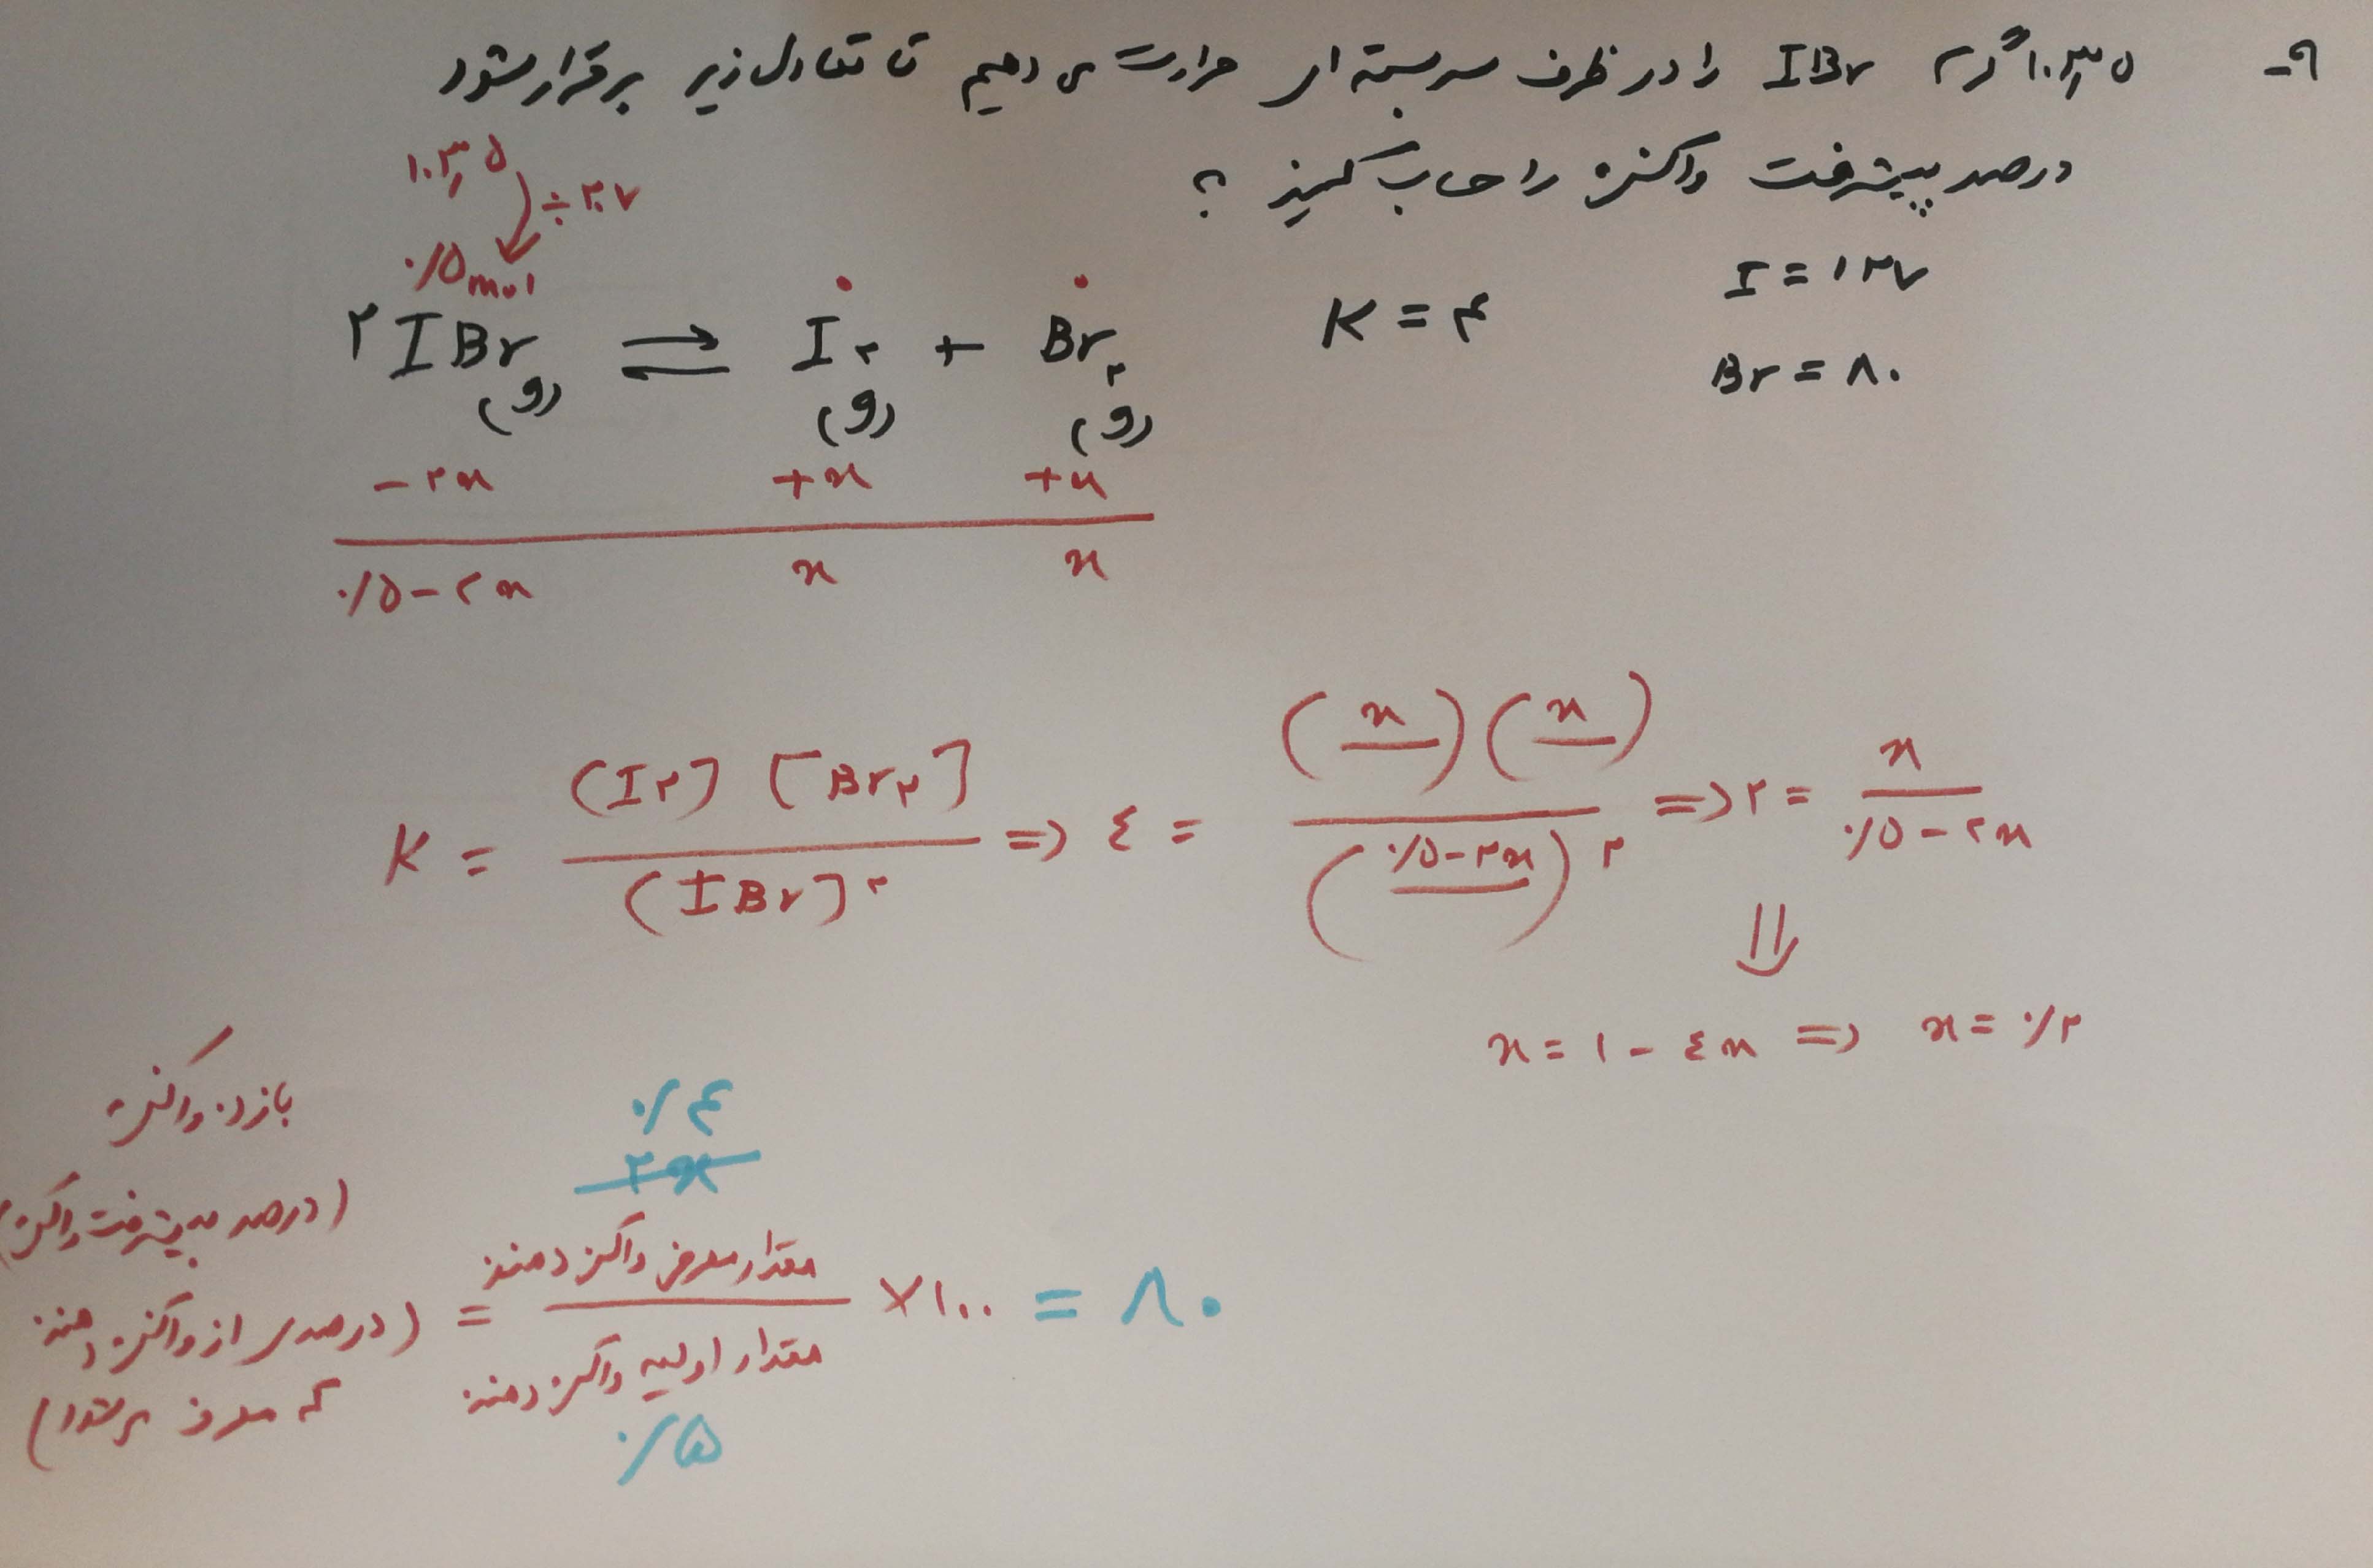 ۹- ۱۰۳٫۵ گرم IBr را در ظرف سربسته ای حرارت می دهیم تا تعادل زیر برقرار شود
درصد پیشرفت واکنش را حساب کنیز ؟
۱۰۳٫۵
÷۲۰۷
۰/۵ mol
I = ۱۲۷
۲IBr(g) ⇌ I۲(g) + Br۲(g) K = ۴
Br = ۸۰
-۲x +x +x
۰/۵-۲x x x
K = [I۲] [Br۲] / [IBr]۲ => ٤ = (x)(x) / (۰/۵-۲x)۲ => ۲ = x / ۰/۵-۲x
⇓
x = ۱ - ٤x => x = ۰/۲
بازده واکنش
(درصد پیشرفت واکنش)
(درصدی از واکنش دهنده که مصرف می شود)
۰/۴
۲x
= مقدار مصرفی واکنش دهنده / مقدار اولیه واکنش دهنده ×۱۰۰ = ۸۰
۰/۵